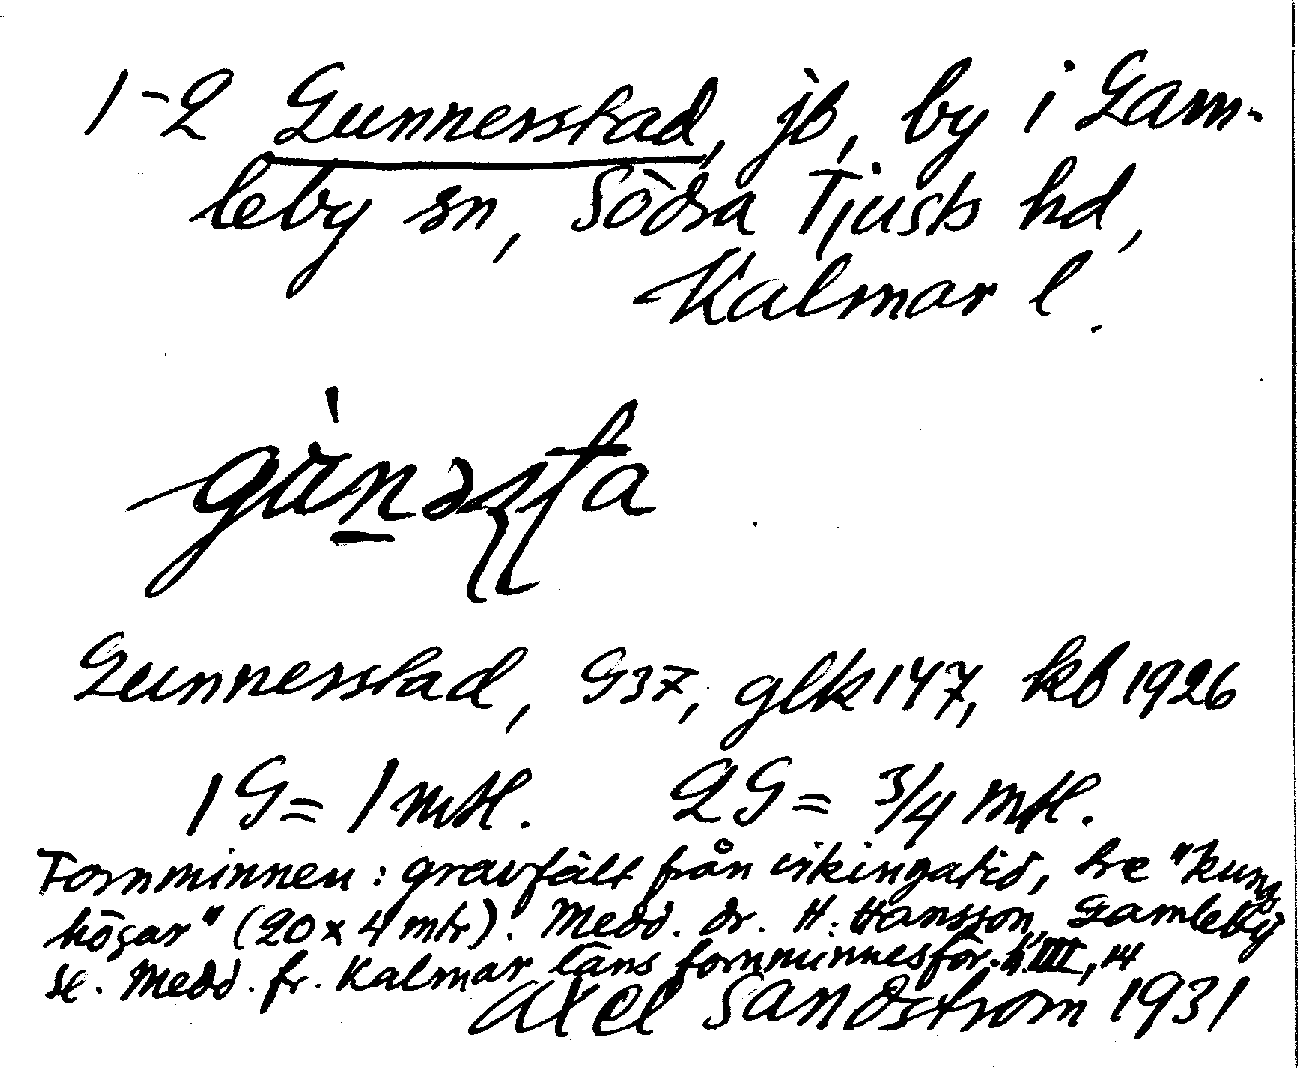 1-2 Gunnerstad, jb, by i Gam-
leby sn, Södra Tjusts hd,
Kalmar l.
Gunnerstad, G37, glk 147, kb 1926
1 G = 1 mtl. 2 G = 3/4 mtl.
Fornminnen: gravfält från vikingatid, tre "kungs
högar" (20 x 4 mtr). Medd. dr. H. Hansson, Gamleby
se. Medd. fr. Kalmar läns fornminnesför. III, 14
Axel Sandström 1931